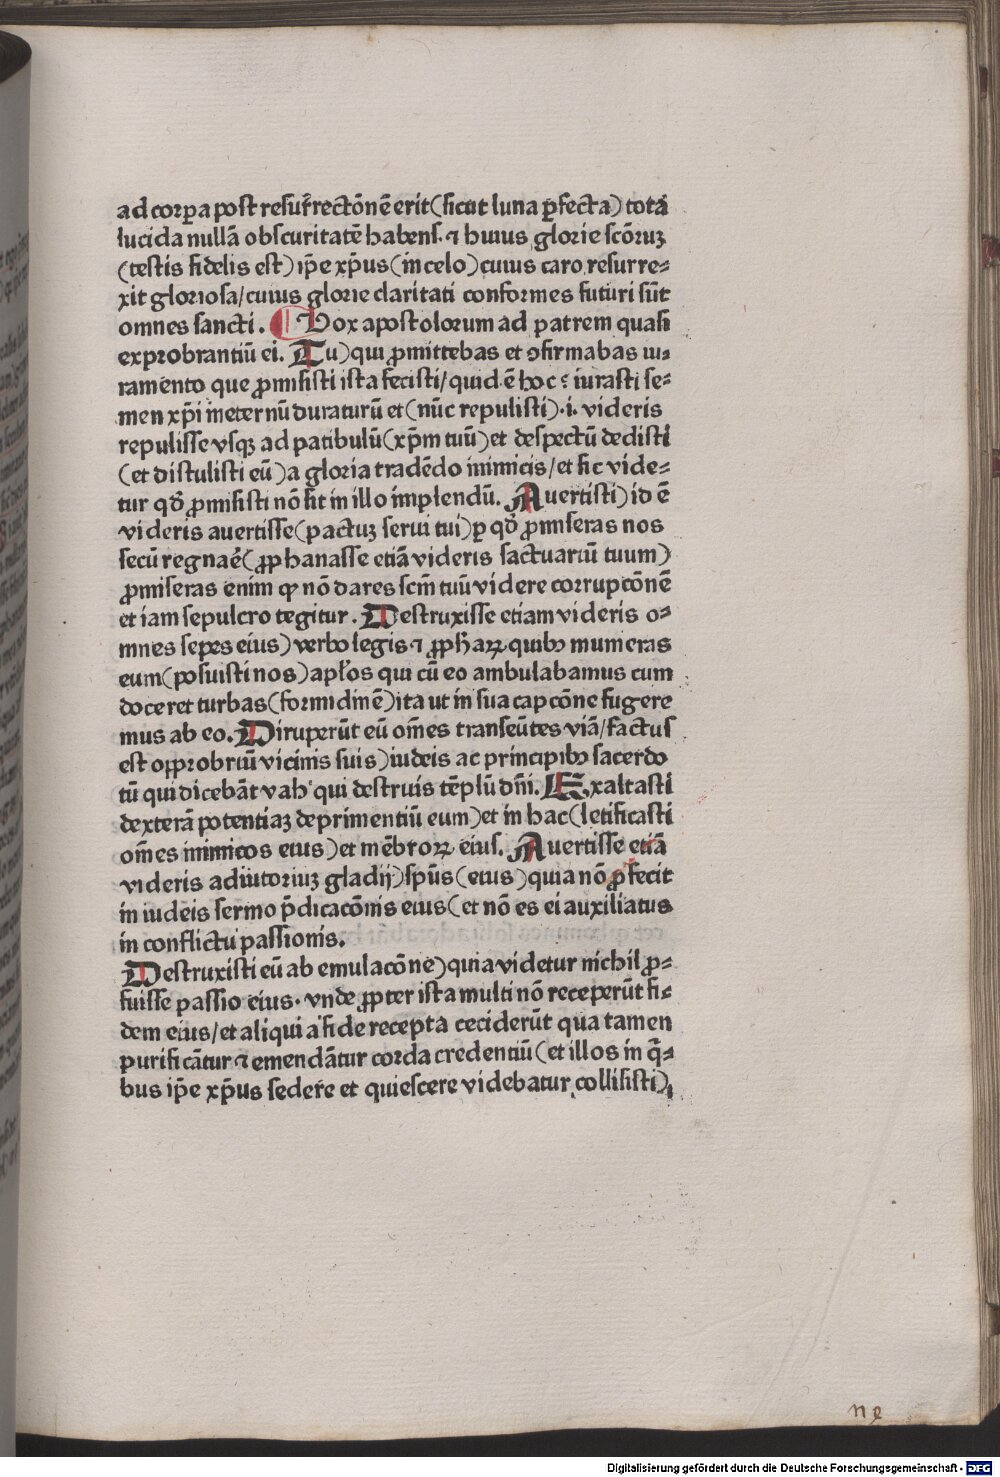 ad corꝑa post resurrectōnē erit (sicut luna ꝑfecta) tota
lucida nullā obscuritatē habens. ⁊ huius glorie scōruꝫ
(testis fidelis est) ip̄e xp̄us (in celo) cuius caro resurre⸗
xit gloriosa/ cuius glorie claritati conformes futuri sūt
omnes sancti. Vox apostolorum ad patrem quasi
exprobrantiū ei. Tu) qui ꝓmittebas et ↄfirmabas iu⸗
ramento que ꝓmisisti ista fecisti/ quid ē hoc? iurasti se⸗
men xp̄i in eternū duraturū et (nūc repulisti) .i. videris
repulisse vsqꝫ ad patibulū (xp̄m tuū) et despectū dedisti
(et distulisti eū) a gloria tradēdo inimicis/ et sic vide⸗
tur qđ ꝓmisisti nō sit in illo implendū. Auertisti) id ē
videris auertisse (pactuꝫ serui tui) ꝑ qđ ꝓmiseras nos
secū regnar̄e (ꝓphanasse etiā videris sāctuariū tuum)
ꝓmiseras enim ꝙ nō dares scm̄ tuū videre corrupcōnē
et iam sepulcro tegitur. Destruxisse etiam videris o⸗
mnes sepes eius) verbo legis ⁊ ꝓph̄aꝝ quibꝰ muneras
eum (posuisti nos) apl'os qui cū eo ambulabamus cum
doceret turbas (formidinē) ita ut in sua capcōne fugere
mus ab eo. Diruperūt eū om̄es transeūtes viā/ factus
est opprobriū vicinis suis) iudeis ac principibꝰ sacerdo
tū qui dicebāt vah qui destruis tēplū dn̄i. Exaltasti
dexterā potentiaꝫ deprimentiū eum) et in hac (letificasti
om̄es inimicos eius) et mēbroꝝ eius. Auertisse etiā
videris adiutoriuꝫ gladij) sp̄us (eius) quia nō ꝓfecit
in iudeis sermo p̄dicacōnis eius (et nō es ei auxiliatus
in conflictu passionis.
Destruxisti eū ab emulacōne) quia videtur nichil ꝓ⸗
fuisse passio eius. vnde ꝓpter ista multi nō receperūt fi⸗
dem eius/ et aliqui a fide recepta ceciderūt qua tamen
purificātur ⁊ emendātur corda credentiū (et illos in q̄⸗
bus ip̄e xp̄us sedere et quiescere videbatur collisisti)
Digitalisierung gefördert durch die Deutsche Forschungsgemeinschaft - DFG